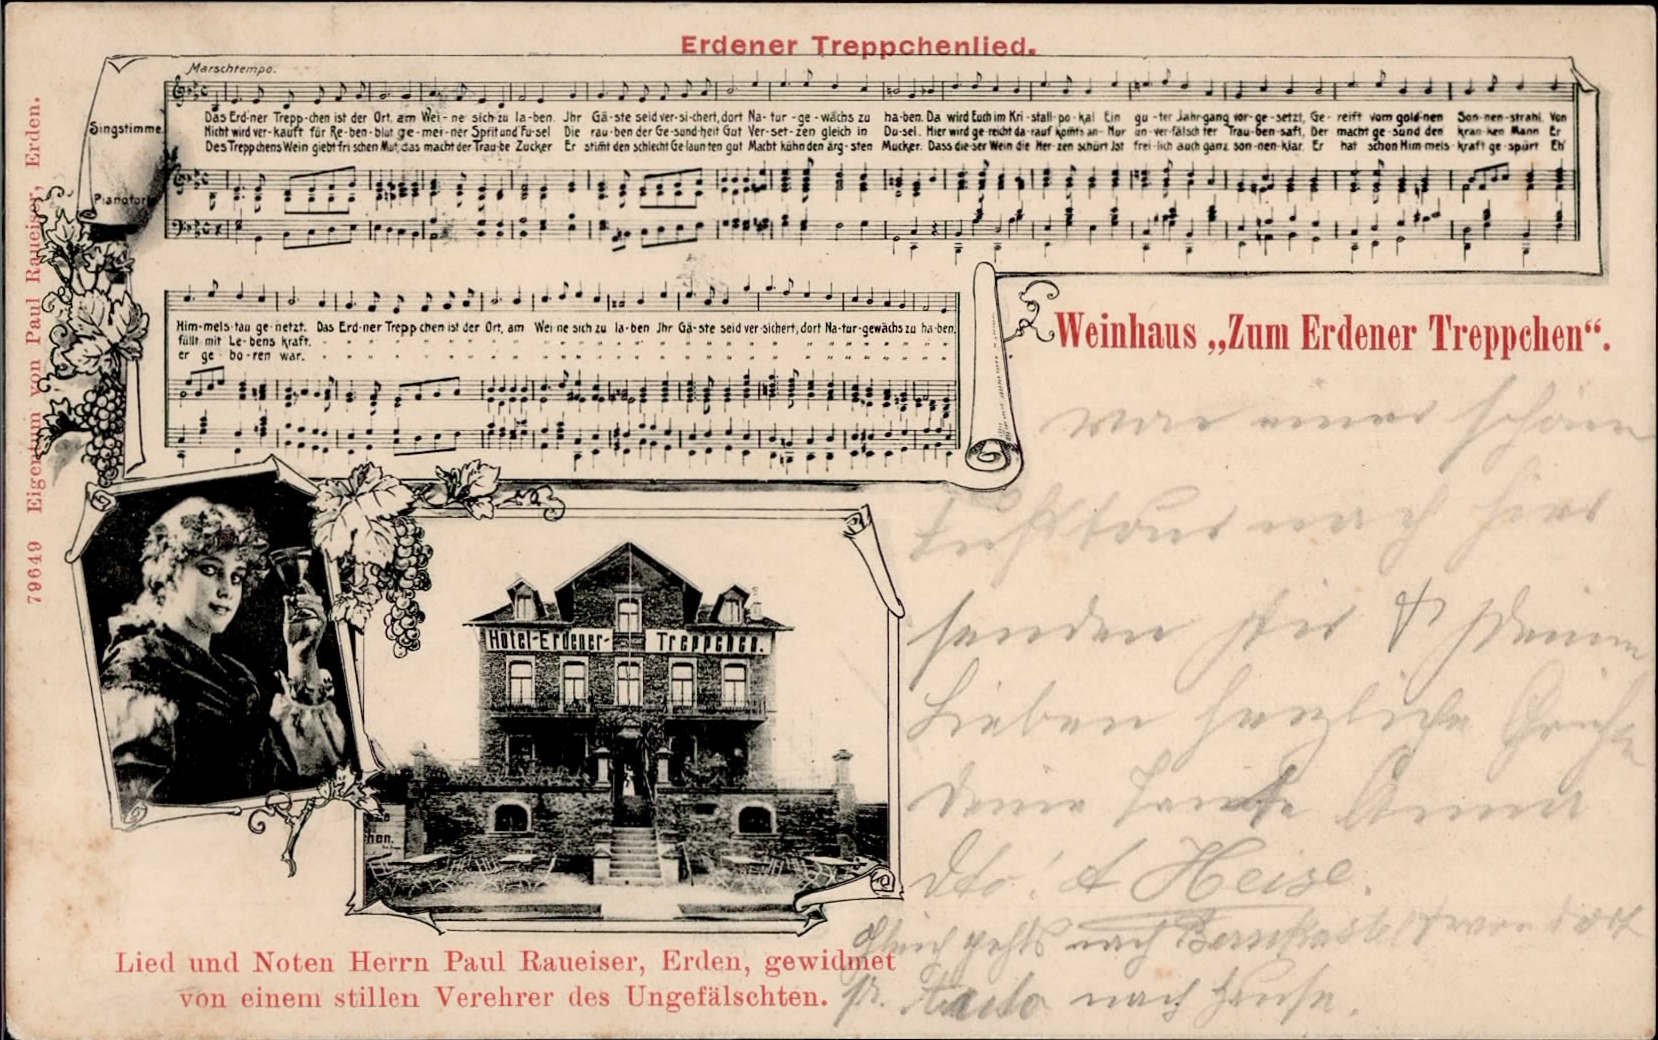 Erdener Treppchenlied.
Marschtempo.
Singstimme.
Das Erd-ner Trepp-chen ist der Ort, am Wei-ne sich zu la-ben. Jhr Gä-ste seid ver-si-chert, dort Na-tur-ge-wächs zu ha-ben. Da wird Euch im Kri-stall-po-kal Ein gu-ter Jahr-gang vor-ge-setzt, Ge-reift vom gold-nen Son-nen-strahl, Von
Nicht wird ver-kauft für Re-ben-blut ge-mei-ner Sprit und Fu-sel Die rau-ben der Ge-sund-heit Gut Ver-set-zen gleich in Du-sel. Hier wird ge-reicht da-rauf komt's an- Nur un-ver-fälsch-ter Trau-ben-saft, Der macht ge-sund den kran-ken Mann Er
Des Treppchens Wein giebt fri-schen Mut, das macht der Trau-be Zucker Er stimt den schlecht Ge-laun-ten gut Macht kühn den ärg-sten Mucker. Dass die-ser Wein die Her-zen schürt Jst frei-lich auch ganz son-nen-klar. Er hat schon Him-mels-kraft ge-spürt Eh'
Pianofor
Him-mels-tau ge-netzt. Das Erd-ner Trepp-chen ist der Ort, am Wei-ne sich zu la-ben Jhr Gä-ste seid ver-sichert, dort Na-tur-gewächs zu ha-ben.
füllt mit Le-bens kraft.
er ge-bo-ren war.
Weinhaus „Zum Erdener Treppchen“.
79649 Eigentum von Paul Raueiser, Erden.
Hôtel-Erdener-Treppchen.
hen.
Lied und Noten Herrn Paul Raueiser, Erden, gewidmet
von einem stillen Verehrer des Ungefälschten.
Von einer schönen
Fußtour nach hier
senden Dir & Deinen
Lieben herzliche Grüße
Deine Tante Anna
dto. A Heise.
Gleich gehts nach Bernkastel & von dort
pr. Auto nach Hause.